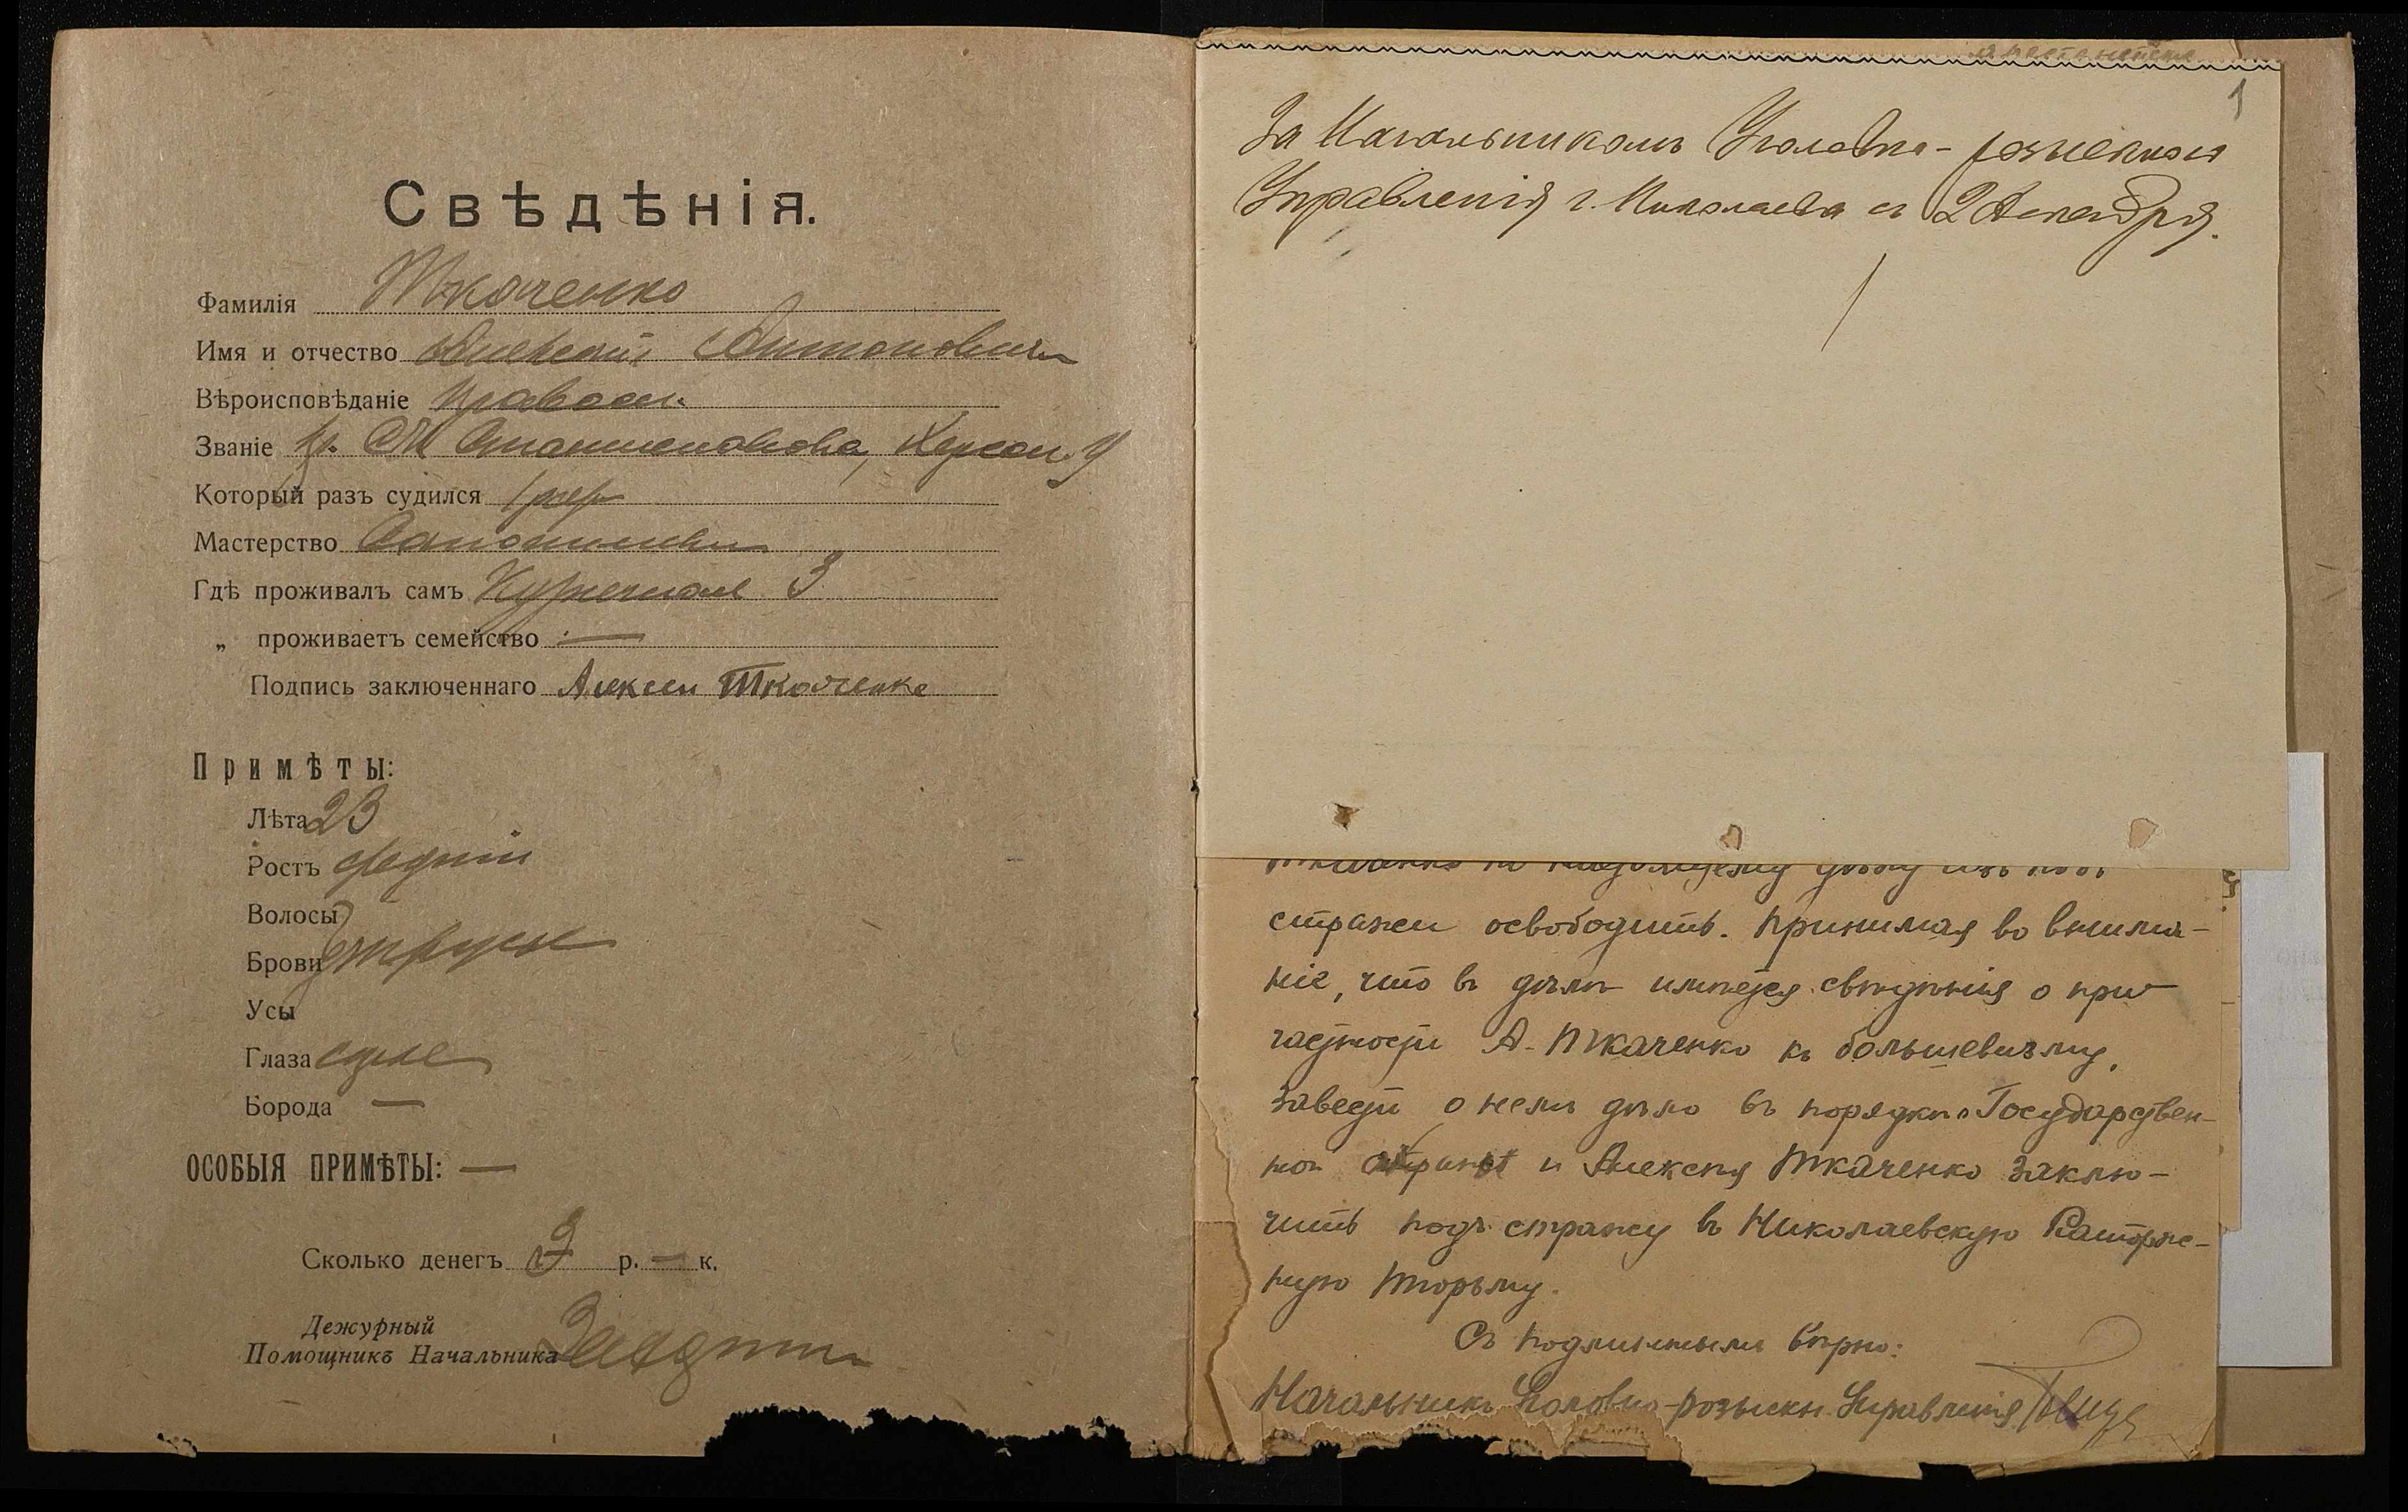 Свѣдѣнія.
Фамилія Ткаченко
Имя и отчество Алексѣй Антоновичъ
Вѣроисповѣданіе правосл.
Званіе кр. Херсон. у
Который разъ судился 1 разъ
Мастерство Сапожникъ
Гдѣ проживалъ самъ Кузнечная 3
„ проживаетъ семейство —
Подпись заключеннаго Алексеи Ткаченко
Примѣты:
Лѣта 23
Ростъ средній
Волосы
Брови
Усы
Глаза сѣрые
Борода —
ОСОБЫЯ ПРИМѢТЫ: —
Сколько денегъ р. — к.
Дежурный
Помощникъ Начальника
1
За Начальникомъ Уголовно-розыскного
Управленія г. Николаева съ 2 Декабря.
Ткаченко по настоящему дѣлу изъ подъ
стражи освободить. Принимая во внима-
ніе, что въ дѣлѣ имѣются свѣдѣнія о при-
частности А. Ткаченко къ большевизму,
завести о немъ дѣло въ порядкѣ Государствен-
ной и Алексѣя Ткаченко заклю-
чить подъ стражу въ Николаевскую Каторж-
ную тюрьму.
Съ подлиннымъ вѣрно:
Начальникъ Уголовно-розыскн. Управленія